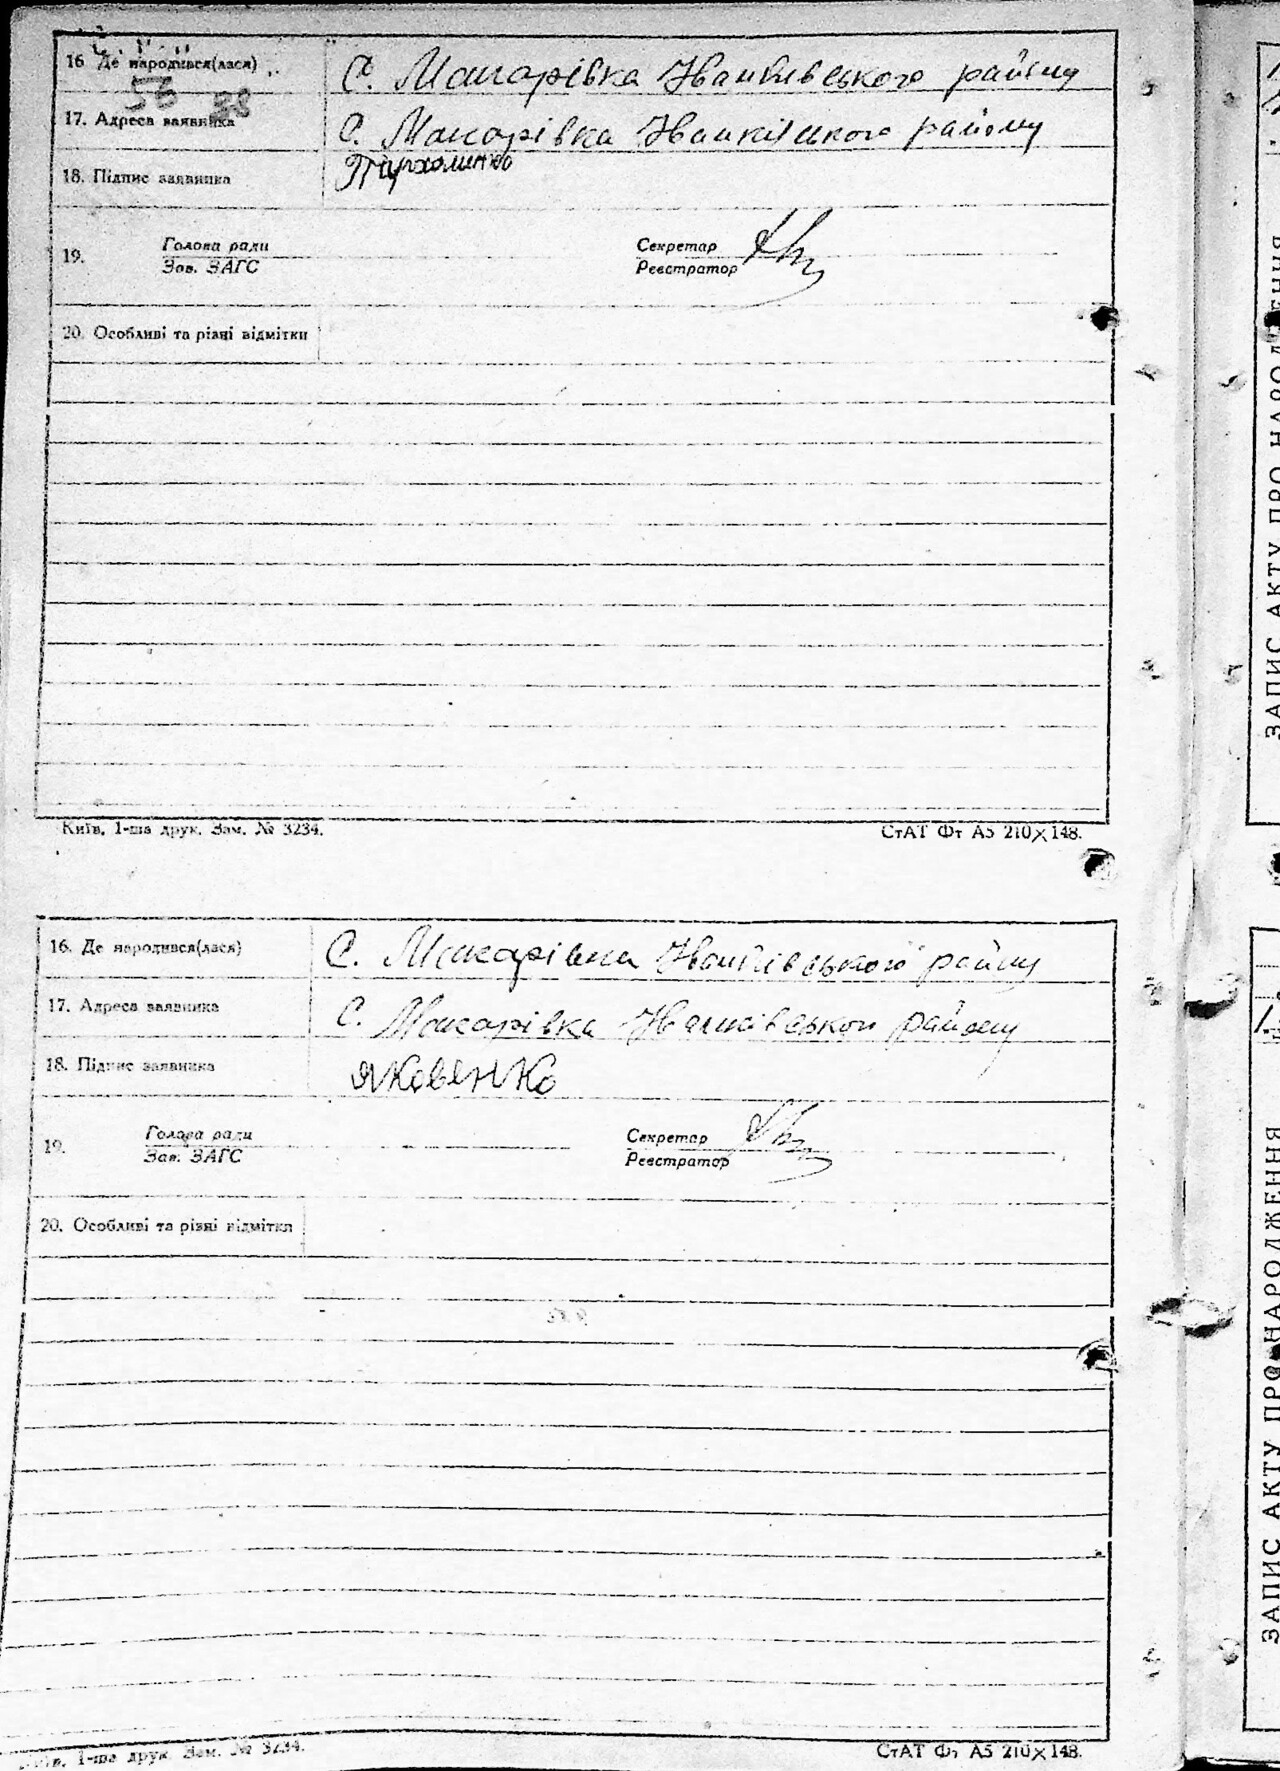 16 Де народився(лася) С. Макарівка Іванківського району
56 38
17. Адреса заявника С. Макарівка Іванківського району
18. Підпис заявника Пархоменко
19. Голова ради Секретар
Зав. ЗАГС Реєстратор
20. Особливі та різні відмітки
Київ, 1-ша друк. Зам. № 3234. СтАТ Фт А5 210×148.
16. Де народився(лася) С. Макарівка Іванківського району
17. Адреса заявника С. Макарівка Іванківського району
18. Підпис заявника Яковенко
19. Голова ради Секретар
Зав. ЗАГС Реєстратор
20. Особливі та різні відмітки
Київ, 1-ша друк. Зам. № 3234. СтАТ Фт А5 210×148.
ЗАПИС АКТУ ПРО НАРОДЖЕННЯ
ЗАПИС АКТУ ПРО НАРОДЖЕННЯ